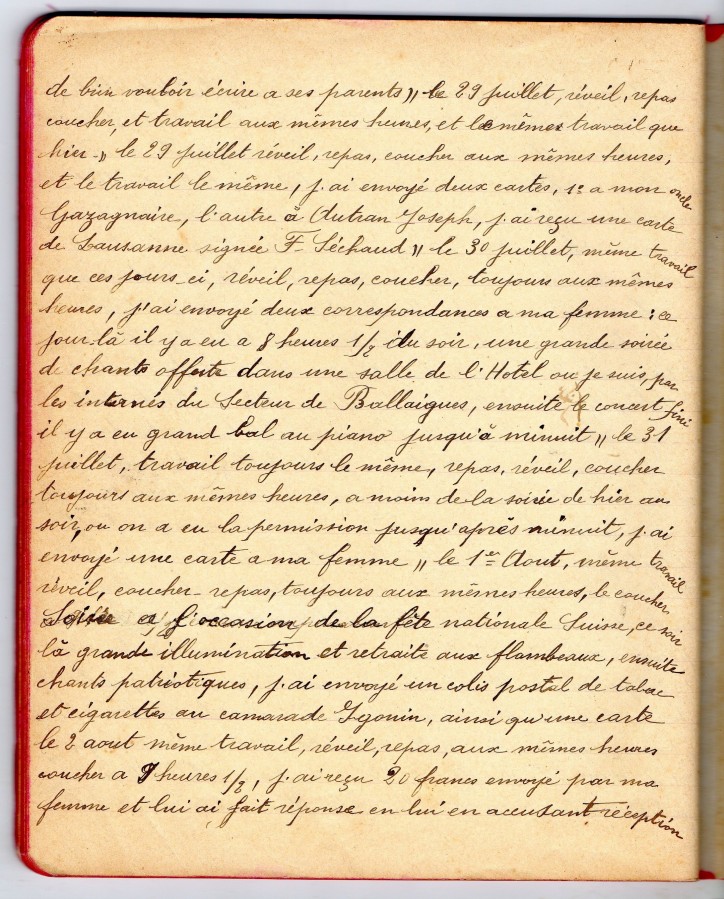 de bien vouloir écrire a ses parents „ le 29 juillet, réveil, repas
coucher, et travail aux mêmes heures, et le mêmes travail que
hier - „ le 29 juillet réveil, repas, coucher aux mêmes heures,
et le travail le même, j.ai envoyé deux cartes, 1º a mon oncle
Gazagnaire, l'autre à Autran Joseph, j.ai reçu une carte
de Lausanne signée F. Séchaud „ le 30 juillet, même travail
que ces jours-ci, réveil, repas, coucher, toujours aux mêmes
heures, j'ai envoyé deux correspondances a ma femme : ce
jour-là il y a eu a 8 heures 1/2 du soir, une grande soirée
de chants offerte dans une salle de l'Hotel ou je suis, par
les internés du Secteur de Ballaigues, ensuite le concert fini
il y a eu grand bal au piano jusqu'à minuit „ le 31
juillet, travail toujours le même, repas, réveil, coucher
toujours aux mêmes heures, a moin de la soirée de hier au
soir, ou on a eu la permission jusqu'après minuit, j.ai
envoyé une carte a ma femme „ le 1er Aout, même travail
réveil, coucher - repas, toujours aux mêmes heures, le coucher
a l'occasion de la fête nationale Suisse, ce soir
là grande illumination et retraite aux flambeaux, ensuite
chants patriotiques, j.ai envoyé un colis postal de tabac
et cigarettes au camarade Ygonin, ainsi qu'une carte
le 2 aout même travail, réveil, repas, aux mêmes heures
coucher a 9 heures 1/2, j.ai reçu 20 francs envoyé par ma
femme et lui ai fait réponse en lui en accusant réception